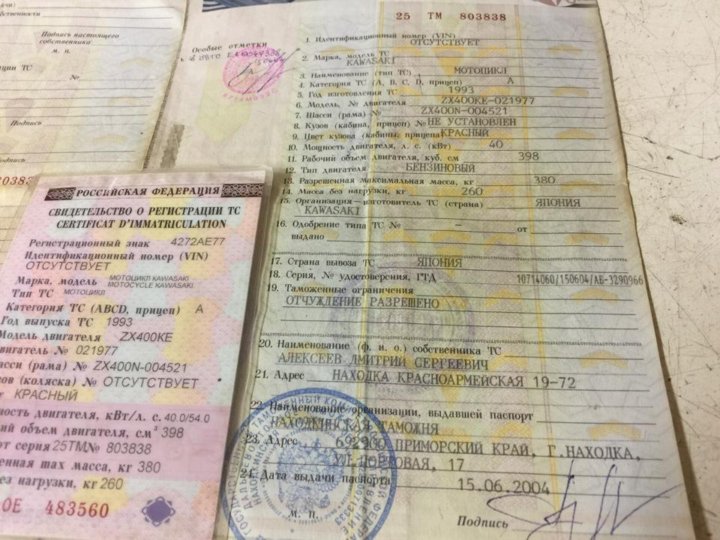 ственности
Подпись настоящего
собственника
м. п.
ТС
Подпись
Подпись
Особые отметки
25 ТМ 803838
1. Идентификационный номер (VIN)
ОТСУТСТВУЕТ
2. Марка, модель ТС
KAWASAKI
3. Наименование (тип ТС) МОТОЦИКЛ
4. Категория ТС (А, В, С, D, прицеп) А
5. Год изготовления ТС 1993
6. Модель, № двигателя ZX400KE-021977
7. Шасси (рама) № ZX400N-004521
8. Кузов (кабина, прицеп) № НЕ УСТАНОВЛЕН
9. Цвет кузова (кабины, прицепа) КРАСНЫЙ
10. Мощность двигателя, л. с. (кВт) 40
11. Рабочий объем двигателя, куб. см 398
12. Тип двигателя БЕНЗИНОВЫЙ
13. Разрешенная максимальная масса, кг 380
14. Масса без нагрузки, кг 260
15. Организация—изготовитель ТС (страна) ЯПОНИЯ
KAWASAKI
16. Одобрение типа ТС № — от
выдано
17. Страна вывоза ТС ЯПОНИЯ
18. Серия, № удостоверения, ГТД 10714060/150604/АБ-3290966
19. Таможенные ограничения
ОТЧУЖДЕНИЕ РАЗРЕШЕНО
20. Наименование (ф. и. о.) собственника ТС
АЛЕКСЕЕВ ДМИТРИЙ СЕРГЕЕВИЧ
21. Адрес НАХОДКА КРАСНОАРМЕЙСКАЯ 19-72
22. Наименование организации, выдавшей паспорт
НАХОДКИНСКАЯ ТАМОЖНЯ
23. Адрес 692900 ПРИМОРСКИЙ КРАЙ, Г.НАХОДКА,
УЛ.ПОРТОВАЯ, 17
24. Дата выдачи паспорта 15.06.2004
м. п.
Подпись
РОССИЙСКАЯ ФЕДЕРАЦИЯ
СВИДЕТЕЛЬСТВО О РЕГИСТРАЦИИ ТС
CERTIFICAT D'IMMATRICULATION
Регистрационный знак 4272АЕ77
Идентификационный номер (VIN)
ОТСУТСТВУЕТ
Марка, модель МОТОЦИКЛ KAWASAKI
MOTOCYCLE KAWASAKI
Тип ТС МОТОЦИКЛ
Категория ТС (ABCD, прицеп) А
Год выпуска ТС 1993
Модель двигателя ZX400KE
двигателя № 021977
асси (рама) № ZX400N-004521
узов (коляска) № ОТСУТСТВУЕТ
КРАСНЫЙ
ность двигателя, кВт/л. с. 40.0/54.0
ий объем двигателя, см³ 398
рт серия 25ТМ № 803838
енная max масса, кг 380
ез нагрузки, кг 260
ОЕ 483560